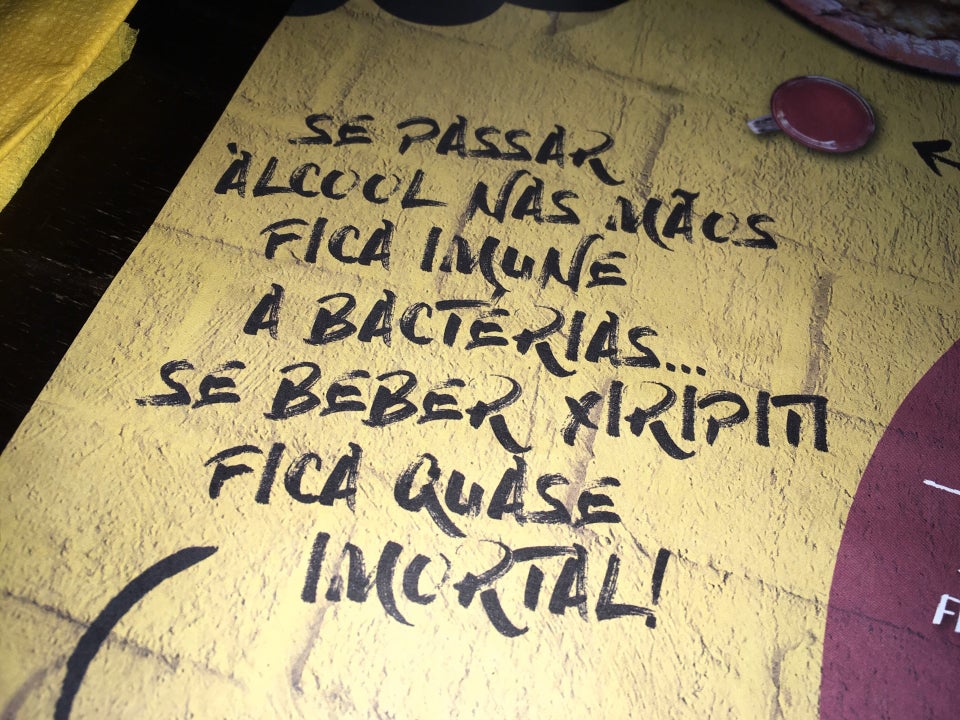 SE PASSAR
ÁLCOOL NAS MÃOS
FICA IMUNE
A BACTÉRIAS...
SE BEBER XIRIPITI
FICA QUASE
IMORTAL!